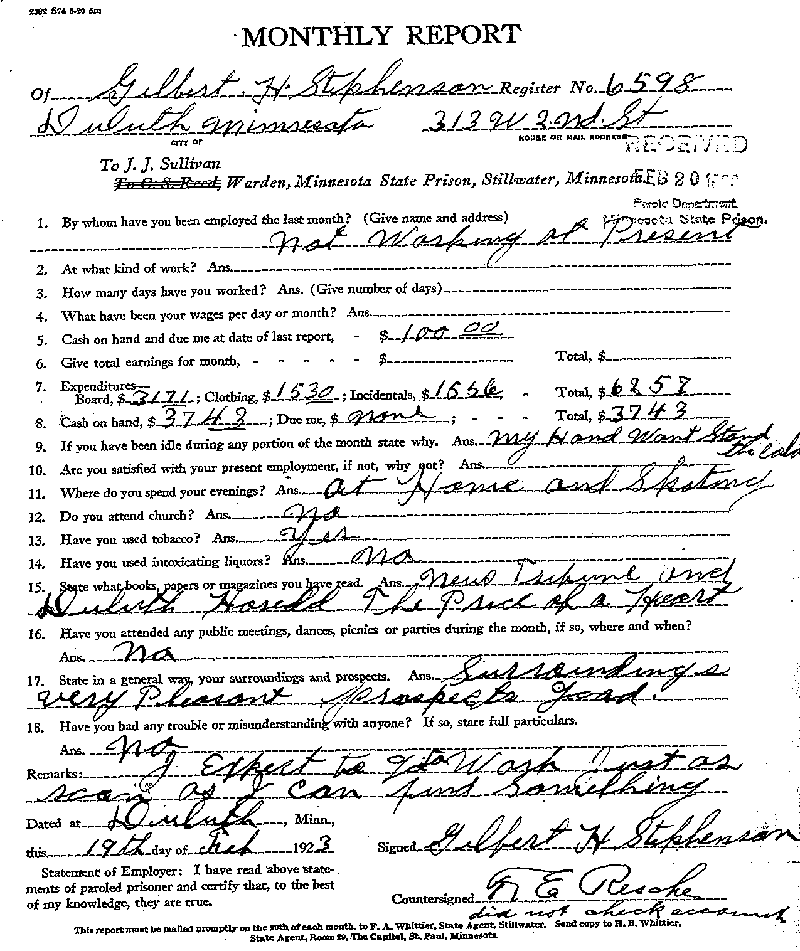 2392 574 5-20 5m
MONTHLY REPORT
Of Gilbert H. Stephenson Register No. 6598
Duluth Minnesota 313 W 2nd St
CITY OF HOUSE OR MAIL ADDRESS
RECEIVED
To J. J. Sullivan
To C. S. Reed, Warden, Minnesota State Prison, Stillwater, Minnesota.
FEB 20
Parole Department
Minnesota State Prison.
1. By whom have you been employed the last month? (Give name and address)
Not Working at Present
2. At what kind of work? Ans.
3. How many days have you worked? Ans. (Give number of days)
4. What have been your wages per day or month? Ans.
5. Cash on hand and due me at date of last report, - $ 100 00
6. Give total earnings for month, - - - - - $ Total, $
7. Expenditures—
Board, $ 3171; Clothing, $ 1530; Incidentals, $ 1556 - Total, $ 6257
8. Cash on hand, $ 3743; Due me, $ none; - - - Total, $ 3743
9. If you have been idle during any portion of the month state why. Ans. My Hand Want Stand
the Cold
10. Are you satisfied with your present employment, if not, why not? Ans.
11. Where do you spend your evenings? Ans. at Home and Skating
12. Do you attend church? Ans. No
13. Have you used tobacco? Ans. Yes
14. Have you used intoxicating liquors? Ans. No
15. State what books, papers or magazines you have read. Ans. News Tribune and
Duluth Herald The Price of a Heart
16. Have you attended any public meetings, dances, picnics or parties during the month, if so, where and when?
Ans. No
17. State in a general way, your surroundings and prospects. Ans. Surroundings
very Pleasant prospects Good.
18. Have you had any trouble or misunderstanding with anyone? If so, state full particulars.
Ans. No
Remarks: I Expect to go to Work Just as
soon as I can find something
Dated at Duluth, Minn.,
this 19th day of Feb 1923 Signed Gilbert H Stephenson
Statement of Employer: I have read above state-
ments of paroled prisoner and certify that, to the best
of my knowledge, they are true.
Countersigned E Resche
did not check account
This report must be mailed promptly on the 20th of each month, to F. A. Whittier, State Agent, Stillwater. Send copy to H. B. Whittier,
State Agent, Room 29, The Capitol, St. Paul, Minnesota.